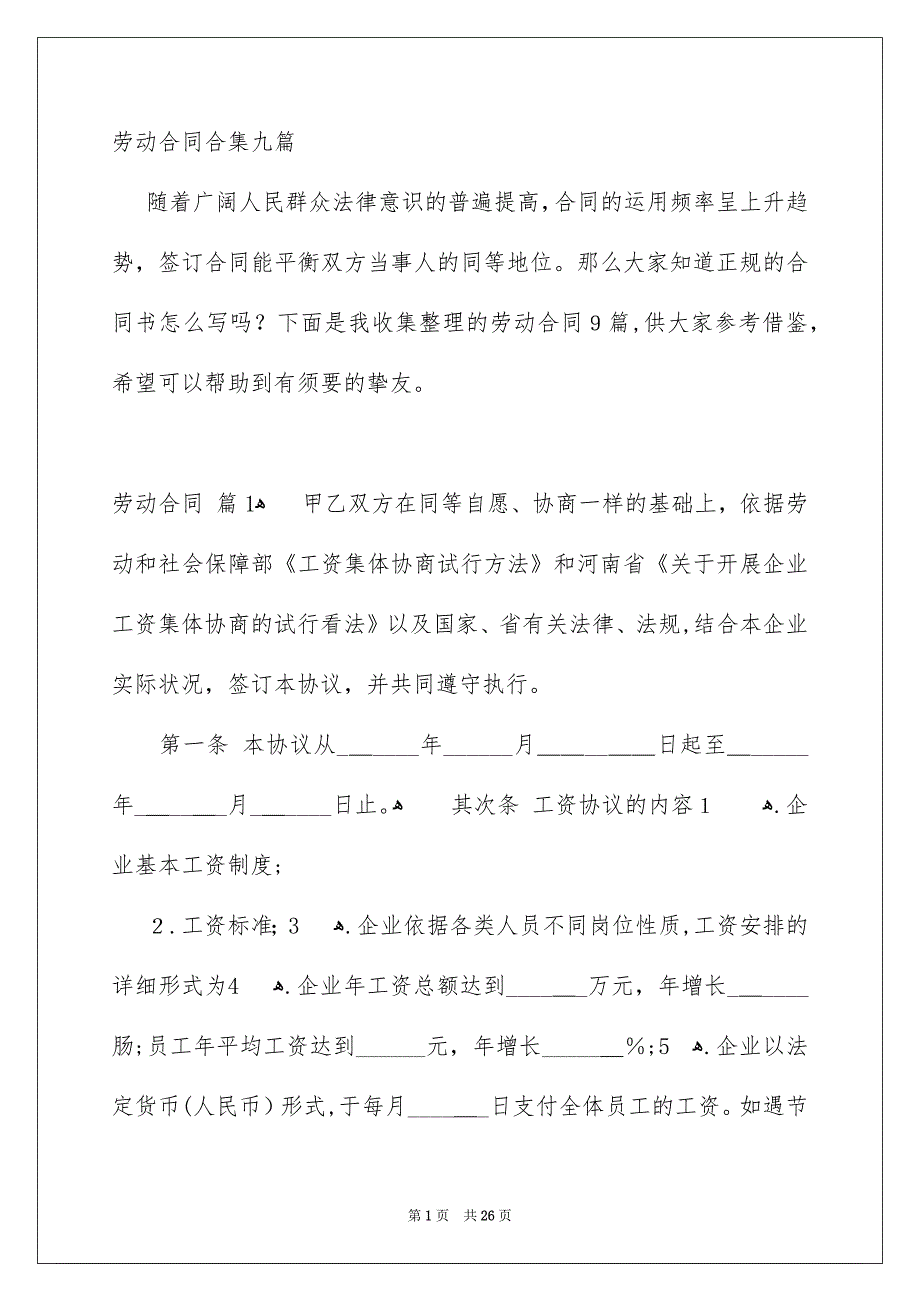 劳动合同合集九篇
随着广阔人民群众法律意识的普遍提高,合同的运用频率呈上升趋
势，签订合同能平衡双方当事人的同等地位。那么大家知道正规的合
同书怎么写吗？下面是我收集整理的劳动合同9篇,供大家参考借鉴,
希望可以帮助到有须要的挚友。
劳动合同 篇1ﻫ 甲乙双方在同等自愿、协商一样的基础上，依据劳
动和社会保障部《工资集体协商试行方法》和河南省《关于开展企业
工资集体协商的试行看法》以及国家、省有关法律、法规,结合本企业
实际状况，签订本协议，并共同遵守执行。
第一条 本协议从_______年______月__________日起至_______
年________月_______日止。ﻫ 其次条 工资协议的内容1 ﻫ.企
业基本工资制度;
2.工资标准;3 ﻫ.企业依据各类人员不同岗位性质,工资安排的
详细形式为4 ﻫ.企业年工资总额达到_______万元，年增长_______
肠;员工年平均工资达到______元，年增长_______%;5 ﻫ.企业以法
定货币(人民币）形式,于每月_______日支付全体员工的工资。如遇节
第1页 共26页